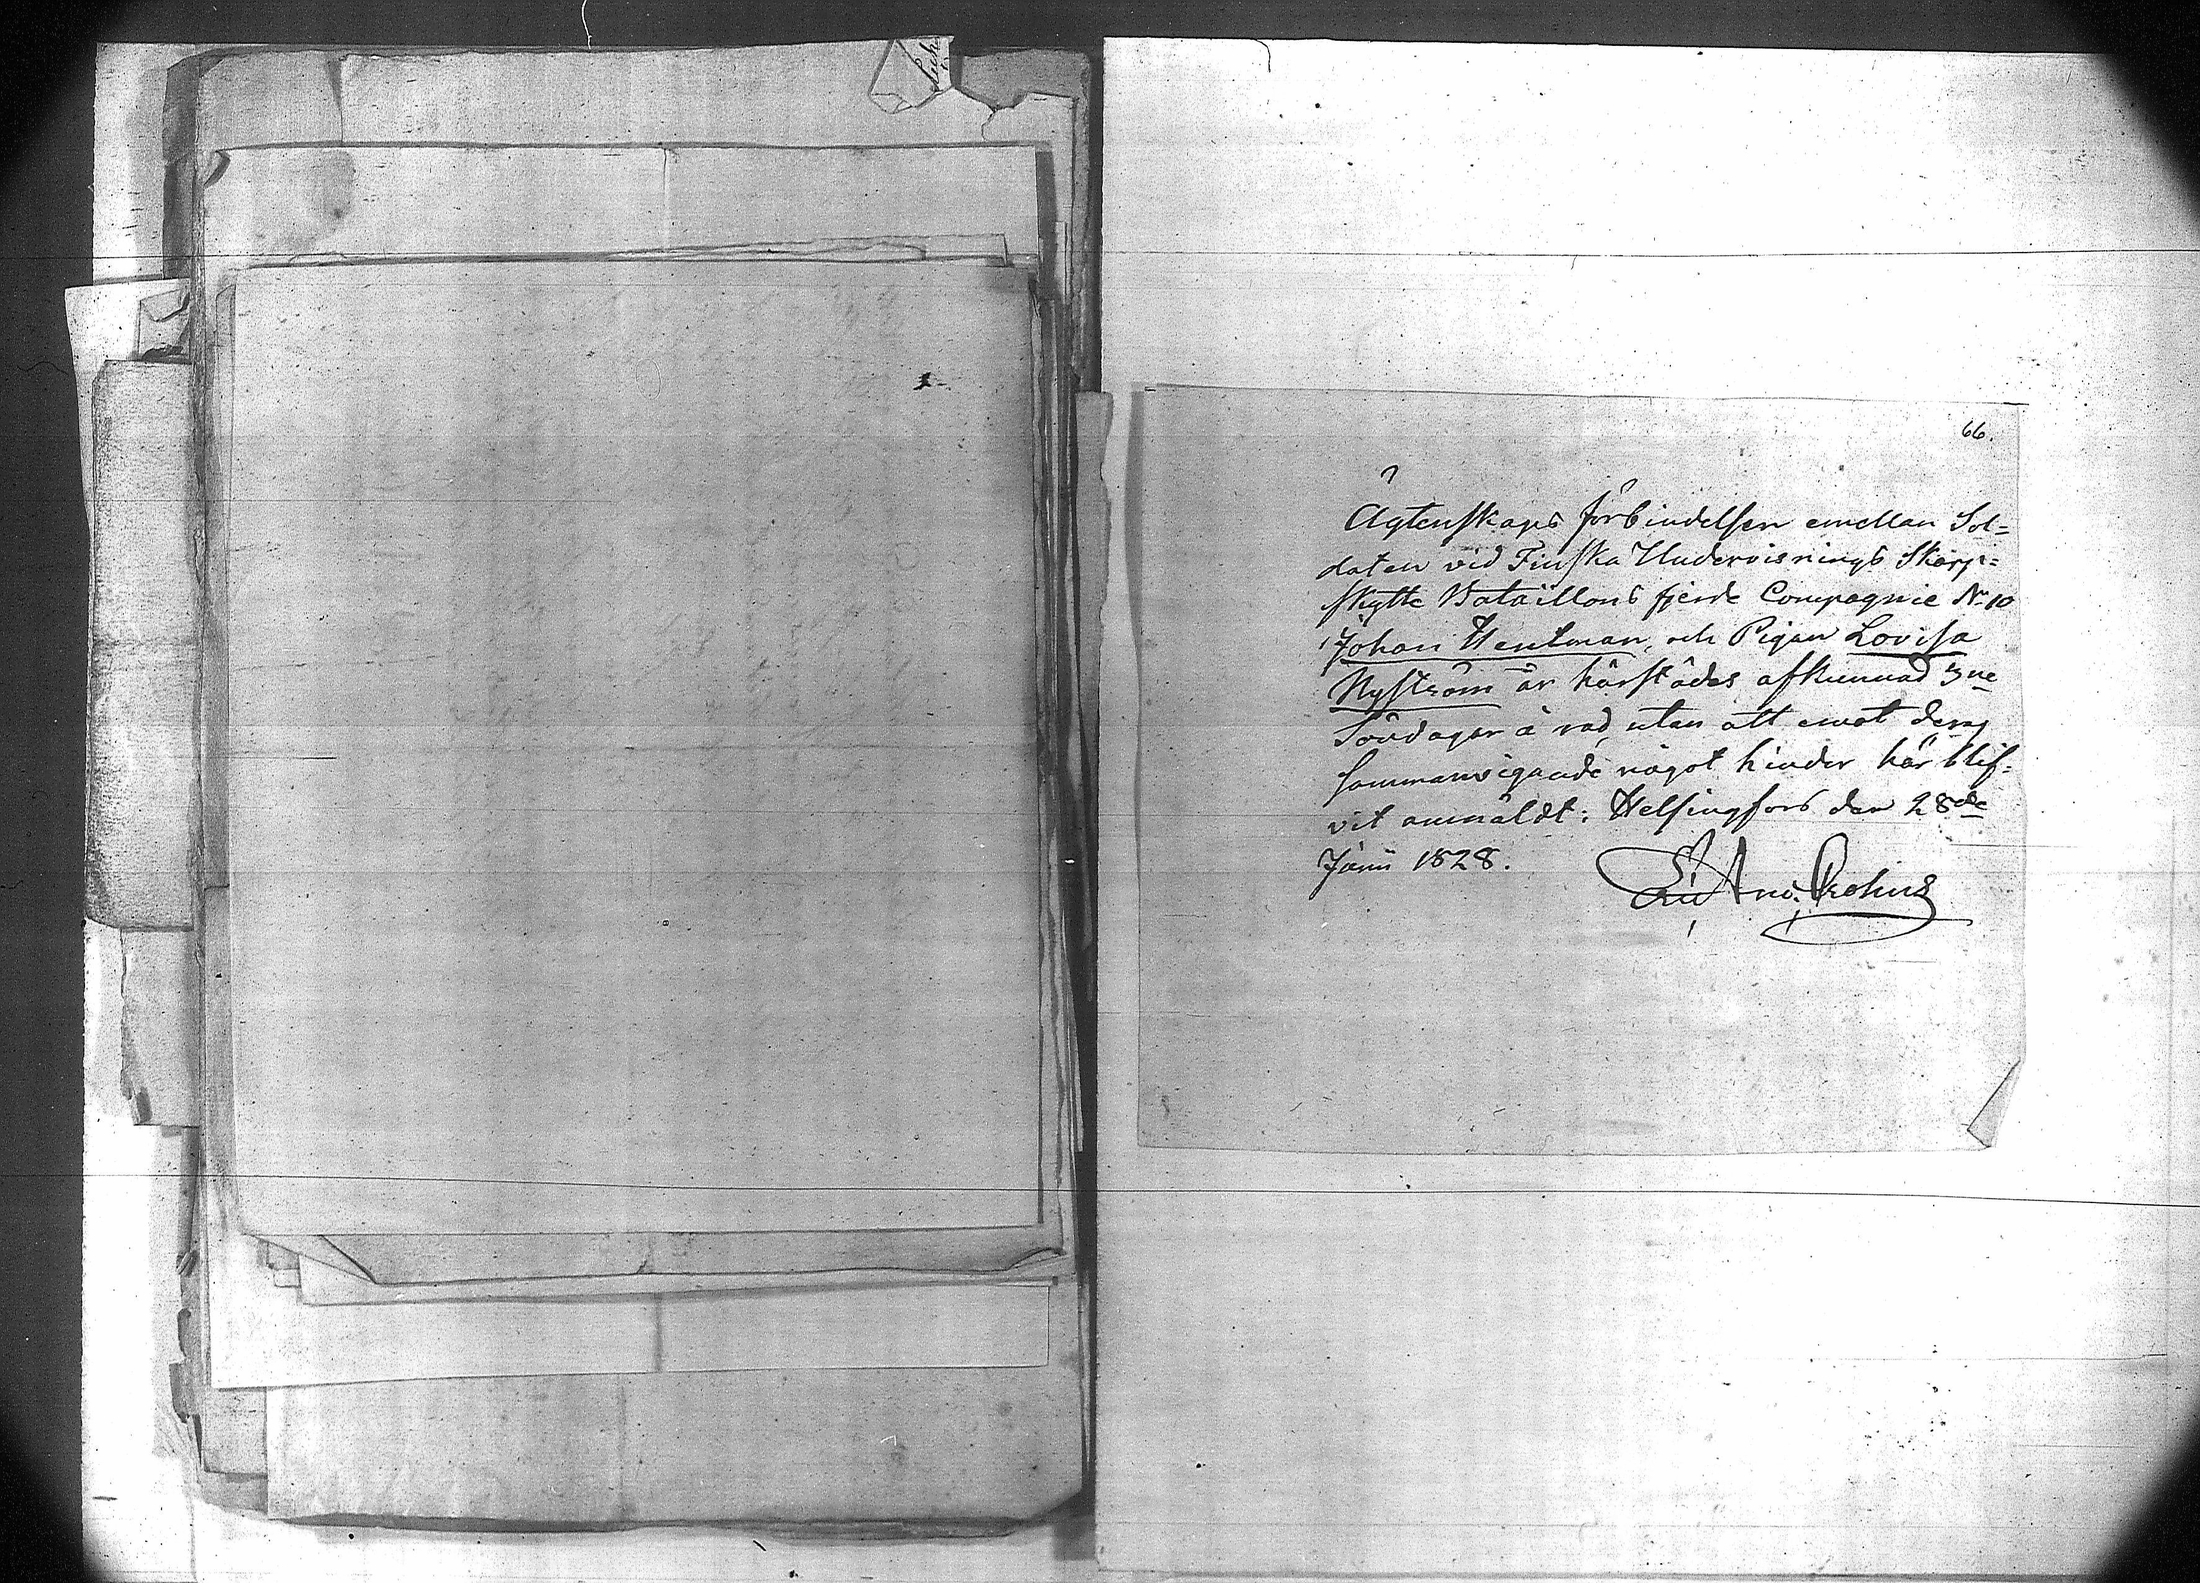 66.
Ägtenskaps förbindelsen emellan Sol=
daten vid Finska Undervisnings Skarp=
skytte Bataillons fjerde Compagnie No 10
Johan Wentman, och Pigan Lovisa
Nyström är härstädes afkunnad 3ne
Söndagar å rad, utan att emot deras
sammanvigande något hinder här blif=
vit anmäldt; Helsingfors den 28de
Junii 1828.